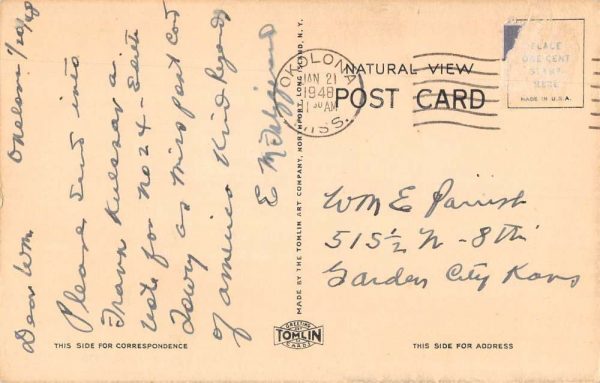 Okolona 1/20/48
Dear Wm
Please send into
Frank
vote for No 24 - Edith
Lowry as Miss Post Card
of America Kind Regards
E M
MADE BY THE TOMLIN ART COMPANY, NORTHPORT, LONG ISLAND, N. Y.
OKOLONA
JAN 21
1948
1 30 AM
MISS.
NATURAL VIEW
POST CARD
PLACE
ONE CENT
STAMP
HERE
MADE IN U.S.A.
Wm E Parrish
515½ N - 8th
Garden City Kans
GREETING
TOMLIN
CARDS
THIS SIDE FOR CORRESPONDENCE
THIS SIDE FOR ADDRESS